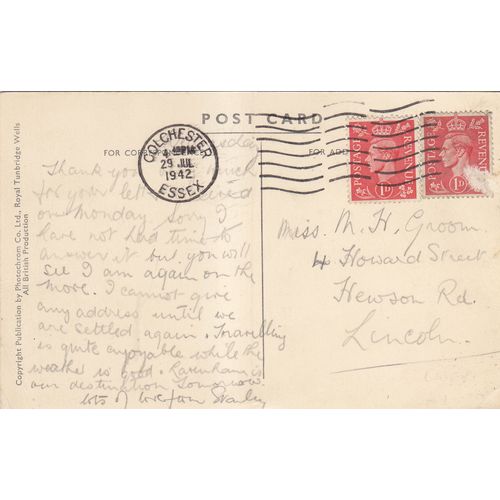 POST CARD
FOR CO
FOR ADD
COLCHESTER
29 JLY
1942
ESSEX
POSTAGE REVENUE
1D
POSTAGE REVENUE
1D
Copyright Publication by Photochrom Co., Ltd., Royal Tunbridge Wells
All British Production
Thank you much
for your letter received
on Monday. Sorry I
have not had time to
answer it but you will
see I am again on the
move. I cannot give
any address until we
are settled again. Travelling
is quite enjoyable while the
weather is good. is
our destination tomorrow.
lots of love from Stanley
Miss. M. H. Groom.
4 Howard Street
Hewson Rd.
Lincoln.